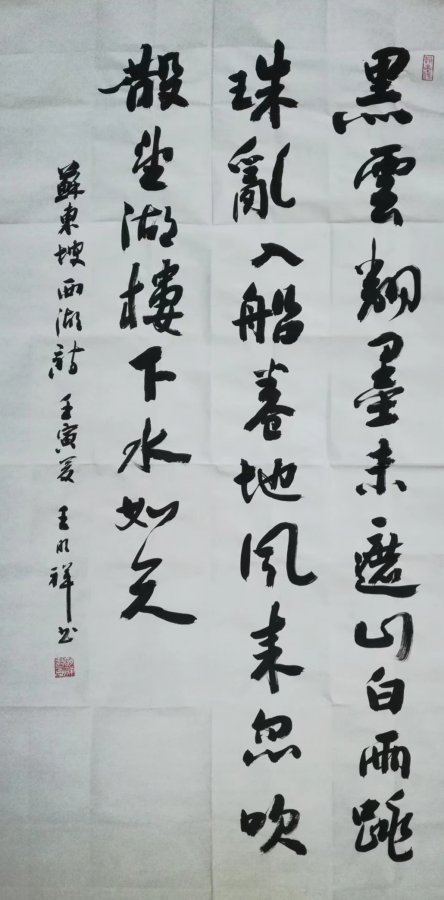 黑雲翻墨未遮山白雨跳
珠亂入船卷地風来忽吹
散望湖樓下水如天
蘇東坡西湖詩 壬寅夏 王明祥书